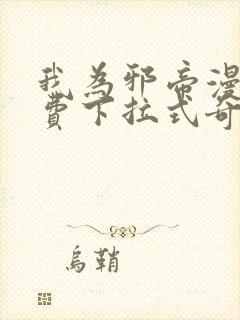 我為邪帝漫
費下拉式奇
烏鞘